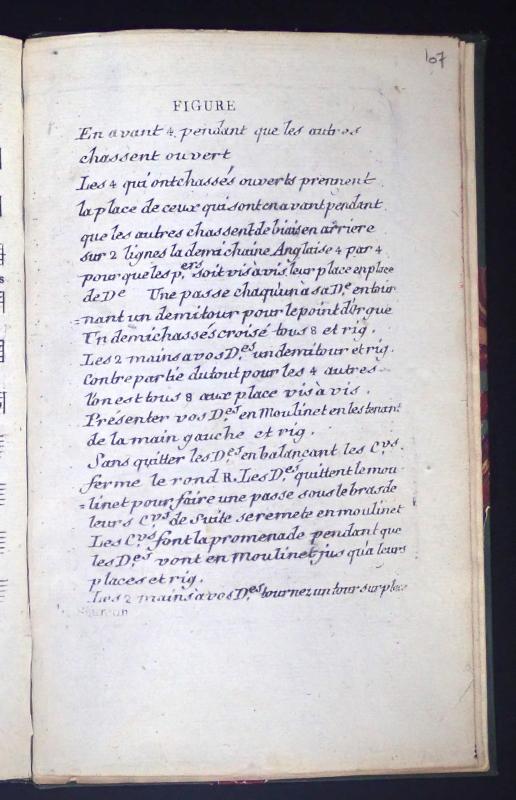 107
FIGURE
En avant 4. pendant que les autres
chassent ouvert
Les 4 qui ont chassés ouverts prennent
la place de ceux qui sont en avant pendant
que les autres chassent de biais en arriere
sur 2 lignes la demi chaine Anglaise 4 par 4
pour que les p.ers soit vis à vis leur place en place
de De Une passe chaqu'un à sa De en tour
=nant un demi tour pour le point d'orgue
Un demi chassés croisé tous 8 et rig.
Les 2 mains a vos D.es un demi tour et rig.
Contre partie du tout pour les 4 autres
l'on est tous 8 aux place vis à vis.
Présenter vos D.es en Moulinet en les tenant
de la main gauche et rig.
Sans quitter les D.es en balançant les C.vs.
ferme le rond R. Les D.es quittent le mou
=linet pour faire une passe sous le bras de
leurs C.vs de Suite se remete en moulinet
Les C.vs font la promenade pendant que
les D.es vont en Moulinet jus qu'a leurs
places et rig.
Les 2 mains a vos D.es tournez un tour sur place